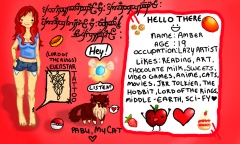 HELLO THERE
NAME: AMBER
AGE: 19
OCCUPATION: LAZY ARTIST
LIKES: READING, ART,
CHOCOLATE MILK, SWEETS,
VIDEO GAMES, ANIME, CATS,
MOVIES, JRR TOLKIEN, THE
HOBBIT, LORD OF THE RINGS,
MIDDLE-EARTH, SCI-FY
Hey!
(LORD OF
THE RINGS)
EVENSTAR
TATTOO
LISTEN
PABU, MY CAT